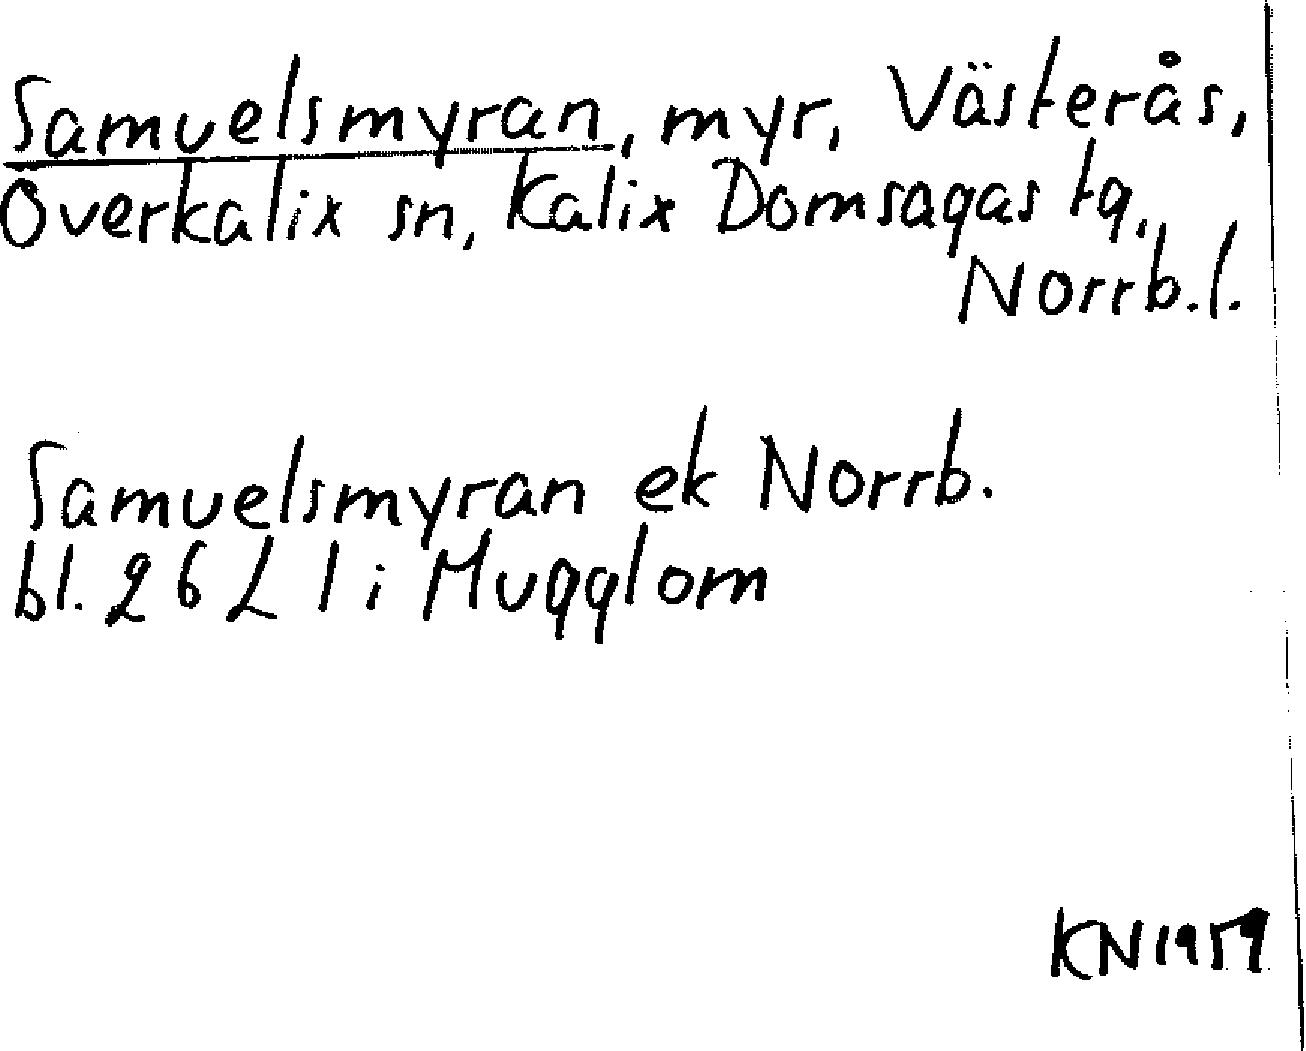 Samuelsmyran, myr, Västerås,
Överkalix sn, Kalix Domsagas tg,
Norrb.l.
Samuelsmyran ek Norrb.
bl. 26 L 1 i Mugglom
KN 1959